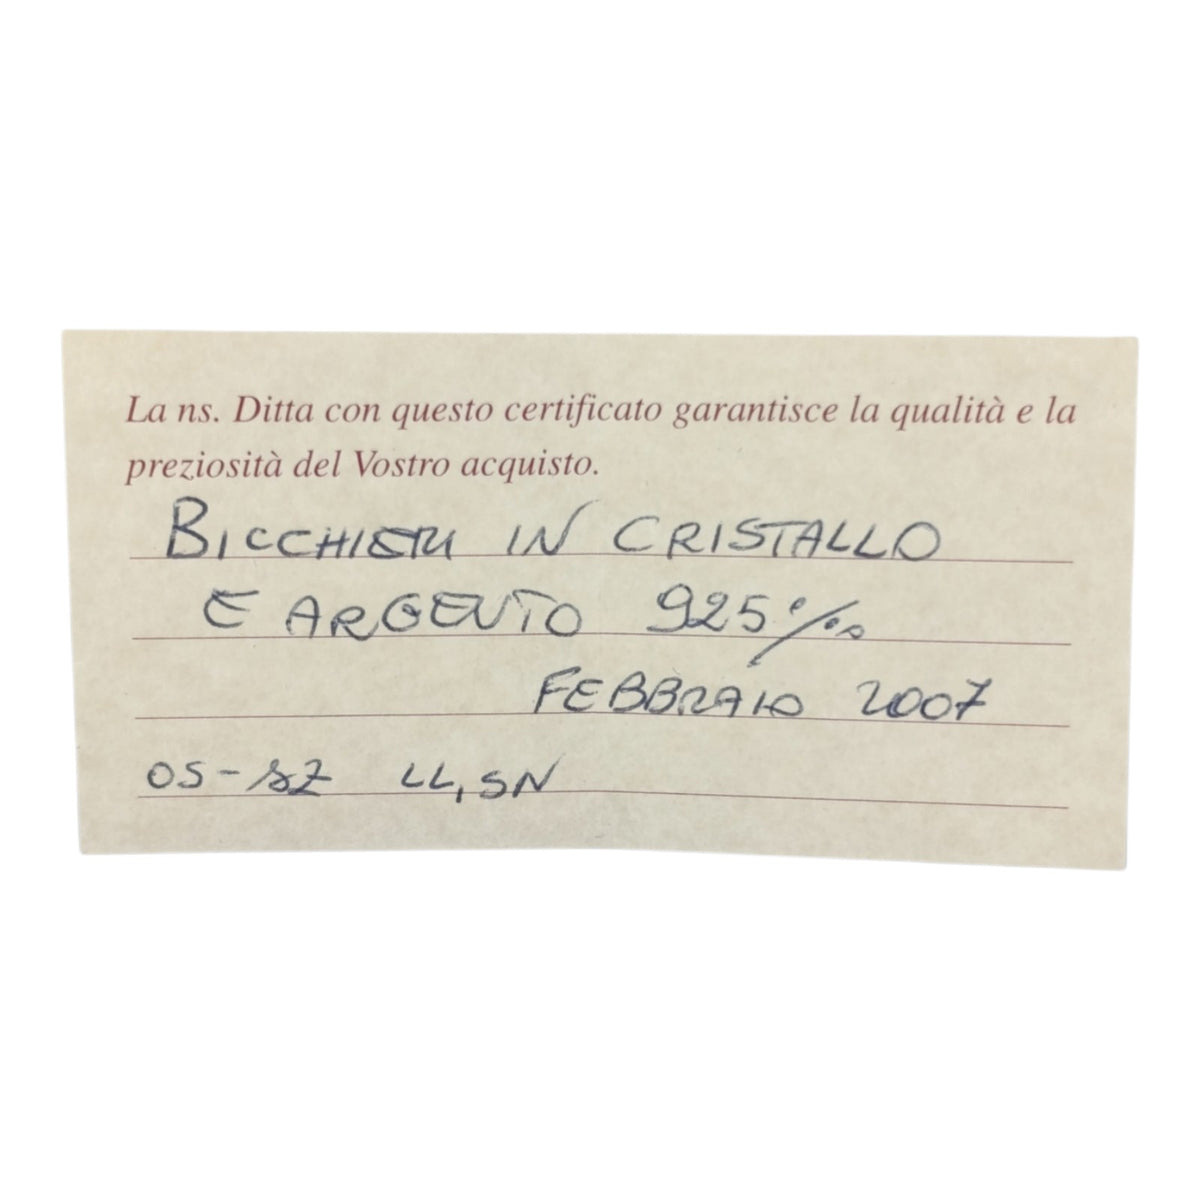 La ns. Ditta con questo certificato garantisce la qualità e la
preziosità del Vostro acquisto.
BICCHIERI IN CRISTALLO
E ARGENTO 925‰
FEBBRAIO 2007
LL, SN